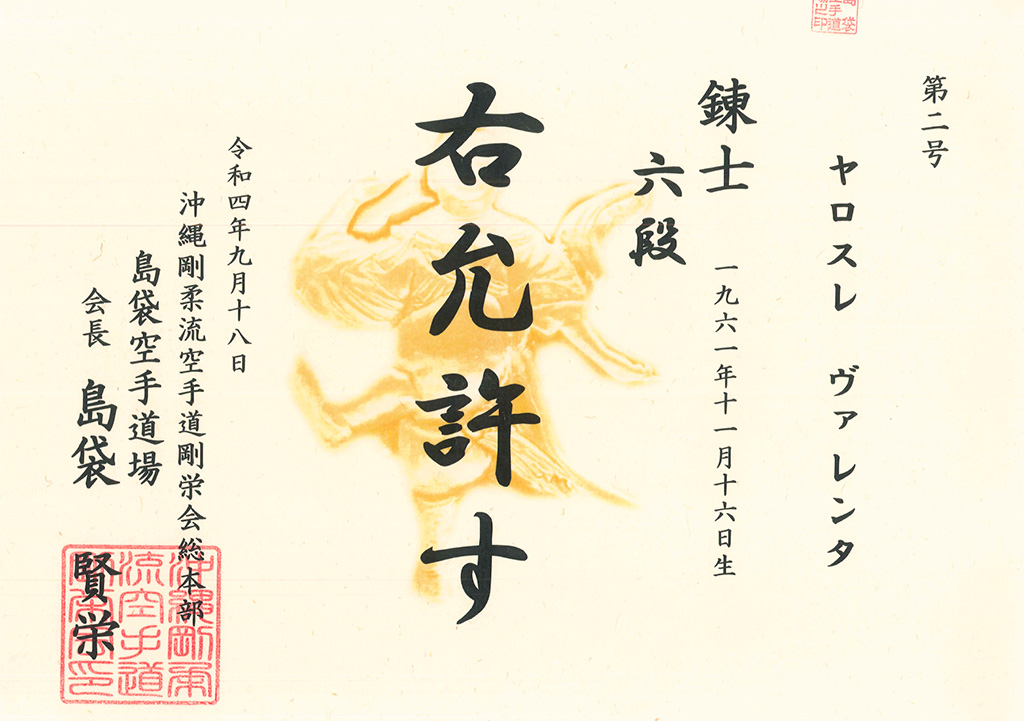 第二号
ヤロスレ ヴァレンタ
錬士
六段
一九六一年十一月十六日生
右允許す
令和四年九月十八日
沖縄剛柔流空手道剛栄会総本部
島袋空手道場
会長 島袋 賢栄